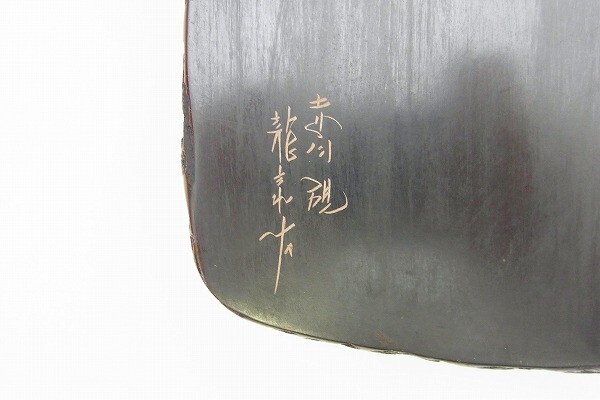 赤間硯
龍泉作